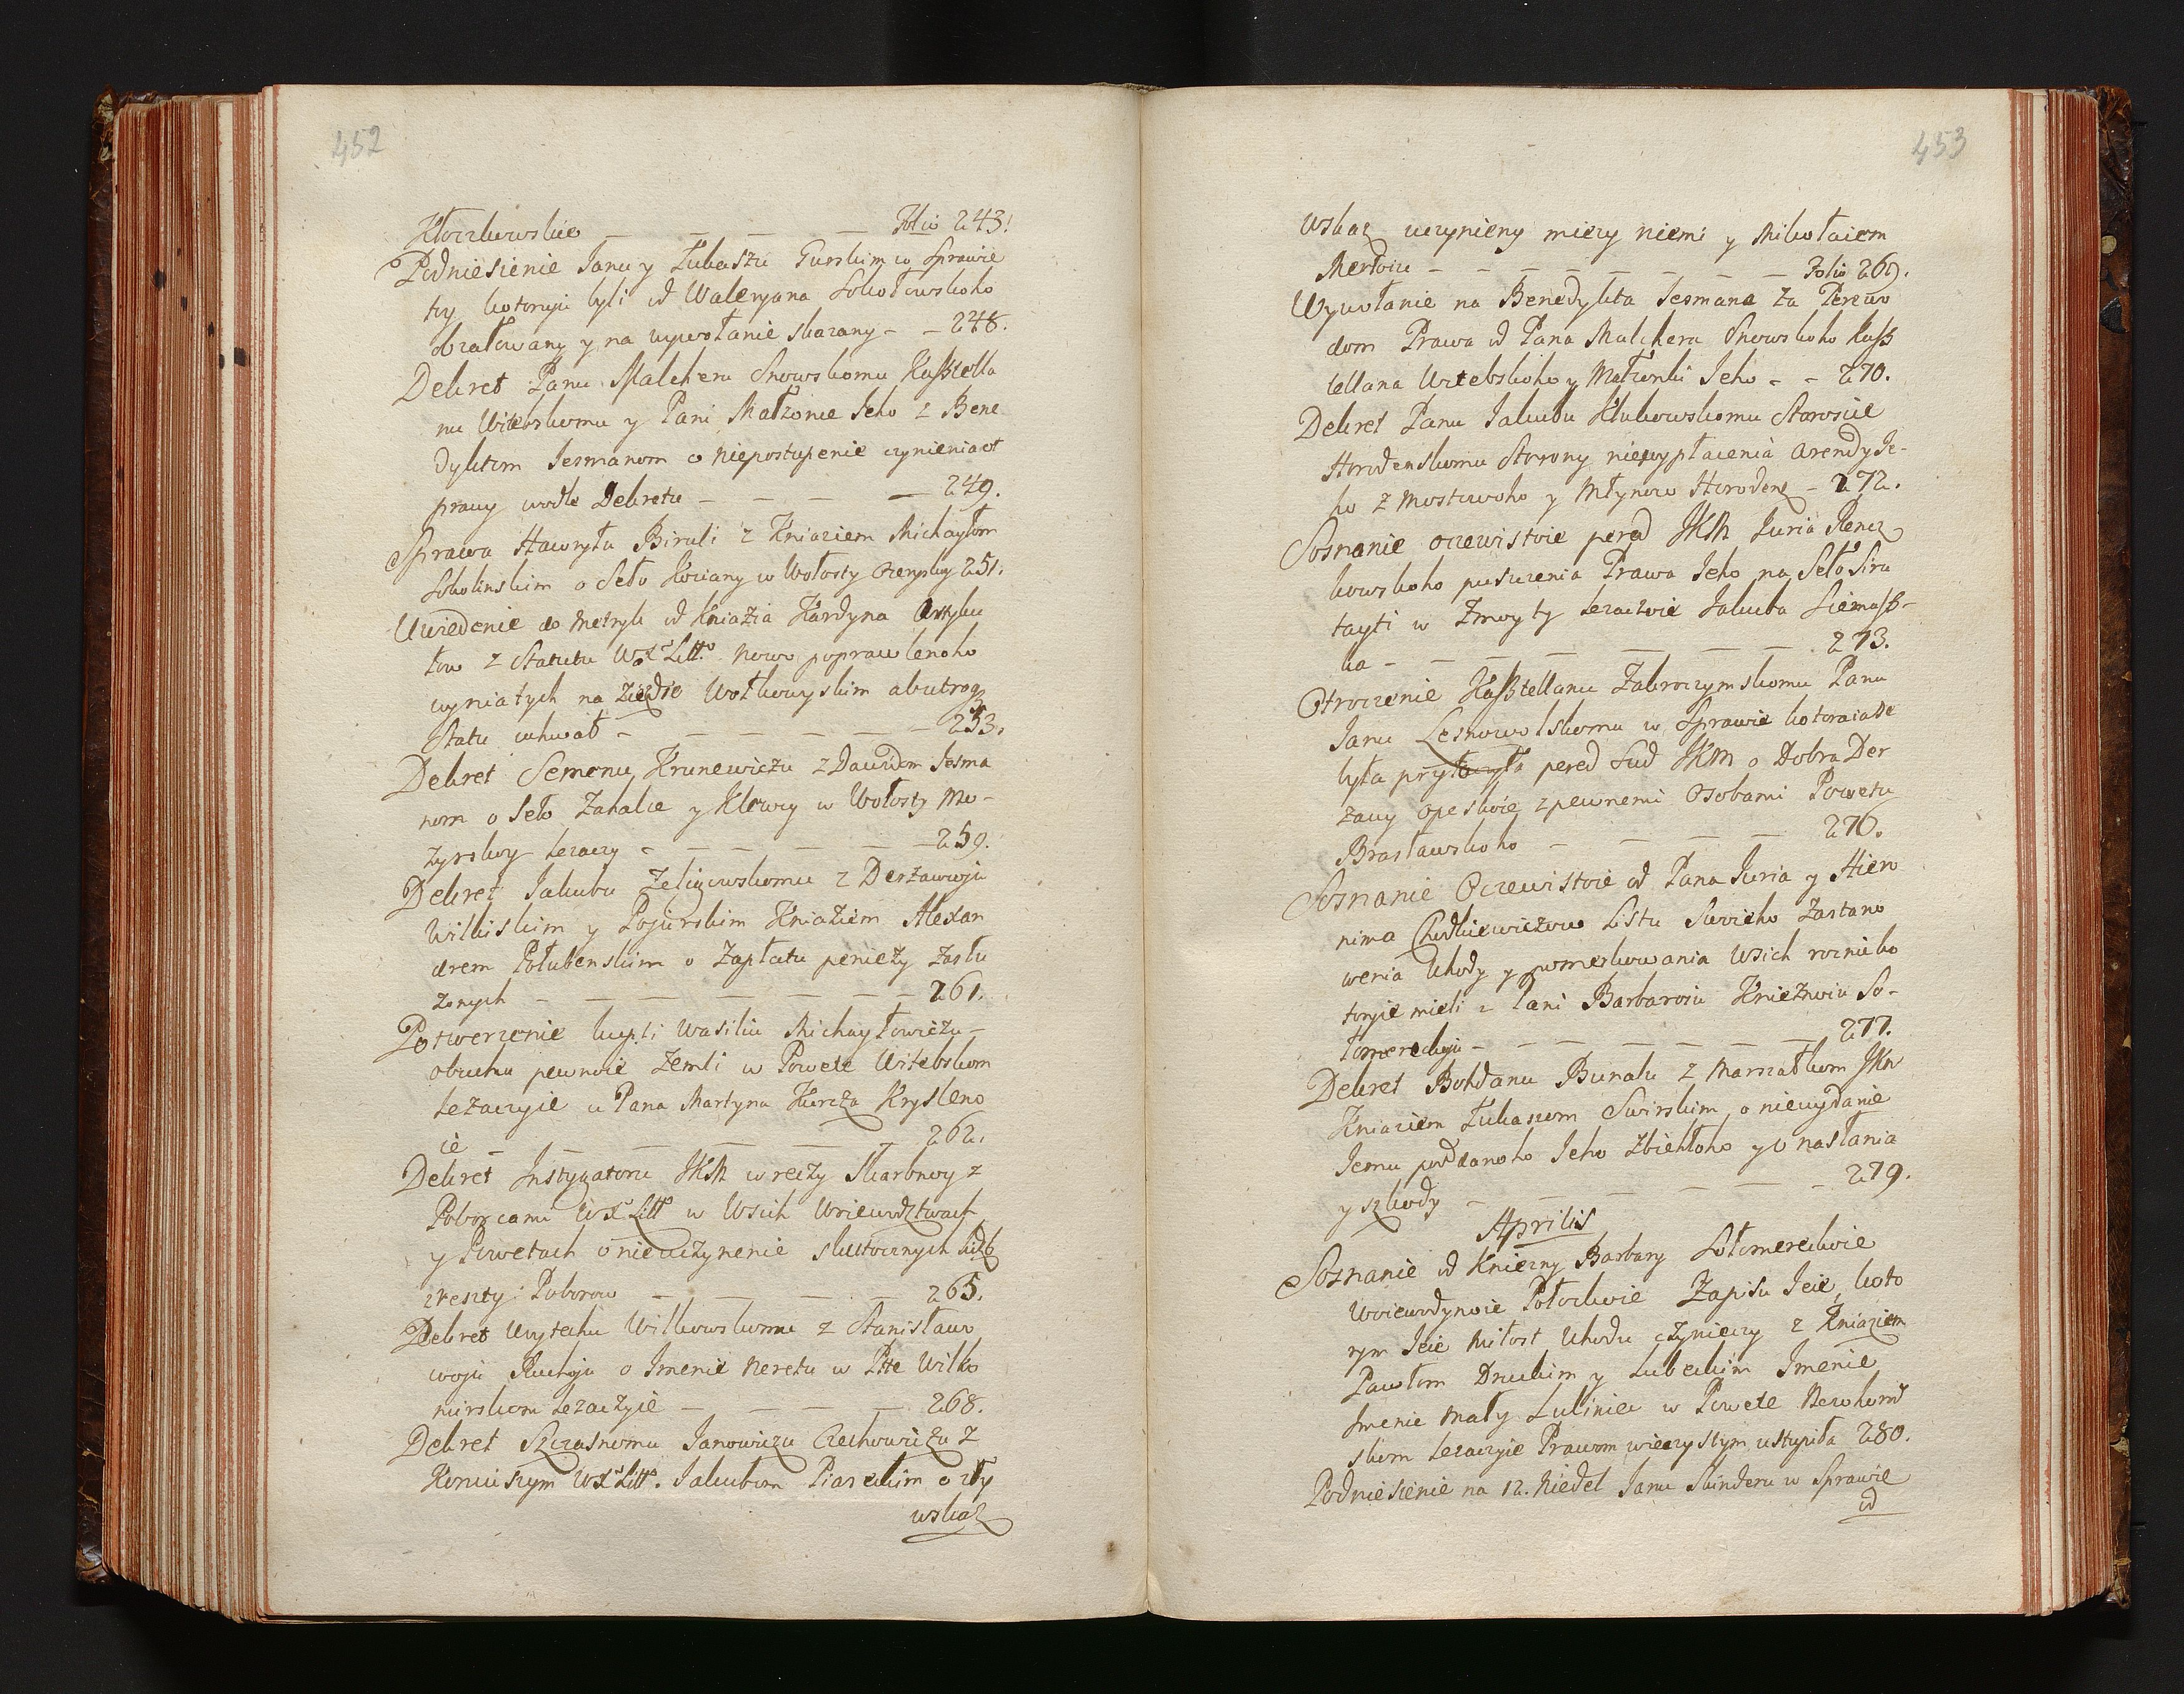 452
Kłoczkowskie — — — — Folio 243.
Podniesienie Janu y Łukaszu Gurskim w Sprawie
toy kotoruju byli od Waleryana Sokołowskoho
obżałowany y na wywołanie skazany - - 248.
Dekret Panu Malcheru Snowskomu Kasztella
nu Witebskomu y Pani Małżonce Jeho z Bene
dyktom Jesmanom o niepostupenie czynienia ot
prawy wodle Dekretu — — — — 249.
Sprawa Hawryła Biruli z Kniaziem Michayłom
Sokolinskim o Seło Koziany w Wołosty Ozeryskoy 251.
Uwiedenie do Metryk od Kniazia Kurdyna Artyku
łow z Statutu W. X. Litt. nowo poprawlenoho
wyniatych na Ziezdie Wołkowyskim
Statu uchwał — — — — — — 253.
Dekret Semenu Krunewiczu z Dawidom Jesma
nom o Seło Zahalie y Klewcy w Wołosty Mo-
zyrskoy lezaczy — — — — — — 259.
Dekret Jakubu Zeligowskomu z Derżawcoju
Wilkiskim y Pojurskim Kniaziem Alexan
drem Połubenskim o Zapłatu peniezy Zasłu
żonych — — — — — — — 261.
Potwerzenie kupli Wasiliu Michayłowiczu-
obruku pewnoie Zemli w Powete Witebskom
Leżaczyie u Pana Martyna Kurcza Krysleno
ie — — — — — — 262.
Dekret Instygatoru JKM w reczy Skarbowoy z
Poborcami W. X. Litt. w Wsich Woiewodztwach
y Powetach o nieuczynenie skutocznych liczb
z reszty Poborow — — — — 265.
Dekret Woytechu Wilkowskomu z Stanisławo
woju Ruckoju o Imenie Neretu w Pte Wilko
mirskom Leżaczyie — — — — 268.
Dekret Szczasnomu Janowiczu Czechowiczu z
Koniuszym W. X. Litt. Jakubom Piaseckim o zły
wskaz
453
Wskaz uczynieny miezy niemi y Mikołaiem
— — — — — — — Folio 269.
Wywołanie na Benedykta Jesmana Za Perewo
dom Prawa od Pana Malchera Snowskoho Kasz
tellana Witebskoho y Małżonki Jeho - - 270.
Dekret Panu Jakubu Kłukowskomu Staroscie
Horodenskomu Storony niewypłacenia Arendy Je-
ho z Mostowoho y Młynow Horodens - 272.
Soznanie oczewistoie pered JKM Juria Rencz
kowskoho puszczenia Prawa Jeho na Seło Siru
tayti w Zmoyty Leżaczoie Jakuba Siemasz-
ka — — — — — — — 273.
Otroczenie Kasztellanu Zakroczymskomu Panu
Janu Lesnowolskomu w Sprawie kotoraiade
była prytoczyła pered Sud JKM o Dobra Der
żawy Opeskoie z pewnemi Osobami Powetu
Brasławskoho — — — — 276.
Soznanie Oczewistoie od Pana Juria y Hiero
nima Chodkiewiczow Listu Swoieho Zastano
wenia Uhody y pomerkowania Wsich roznic ko
toryie mieli z Pani Barbaroiu Kniezhoiu So-
łomereckoju — — — — — — 277.
Dekret Bohdanu Bunaku z Marszałkom JKM
Kniaziem Łukaszom Swirskim, o niewydanie
Jemu poddanoho Jeho Zbiehłoho y o nasłania
y szkody — — — — — — 279.
Aprilis
Soznanie od Kniezny Barbary Sołomereckoie
Woiewodynoie Połockoie Zapisu Jeie, koto
rym Jeie Miłost Uhodu czyniaczy z Kniaziem
Pawłom Druckim y Lubeckim Imenie
Imenie Mały Luliniec w Powete Nowhorod
skom leżaczyie Prawom wieczystym ustupiła 280.
Podniesienie na 12. Niedel Janu Skinderu w Sprawie
od